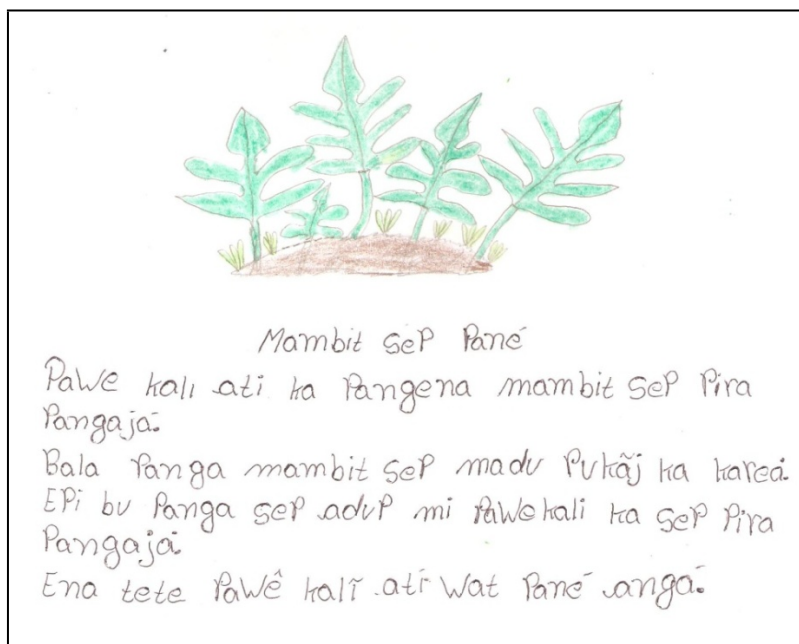 Mambit sep Pané
Pawe kali ati ka Pangena mambit sep Pira
Pangajá.
Bala Panga mambit sep madu Pukãj ka kareá.
EPi bu Panga sep aduP mi Pawekali ka sep Pira
Pangajá.
Ena tete Pawê kalĩ ati wat Pané angá.